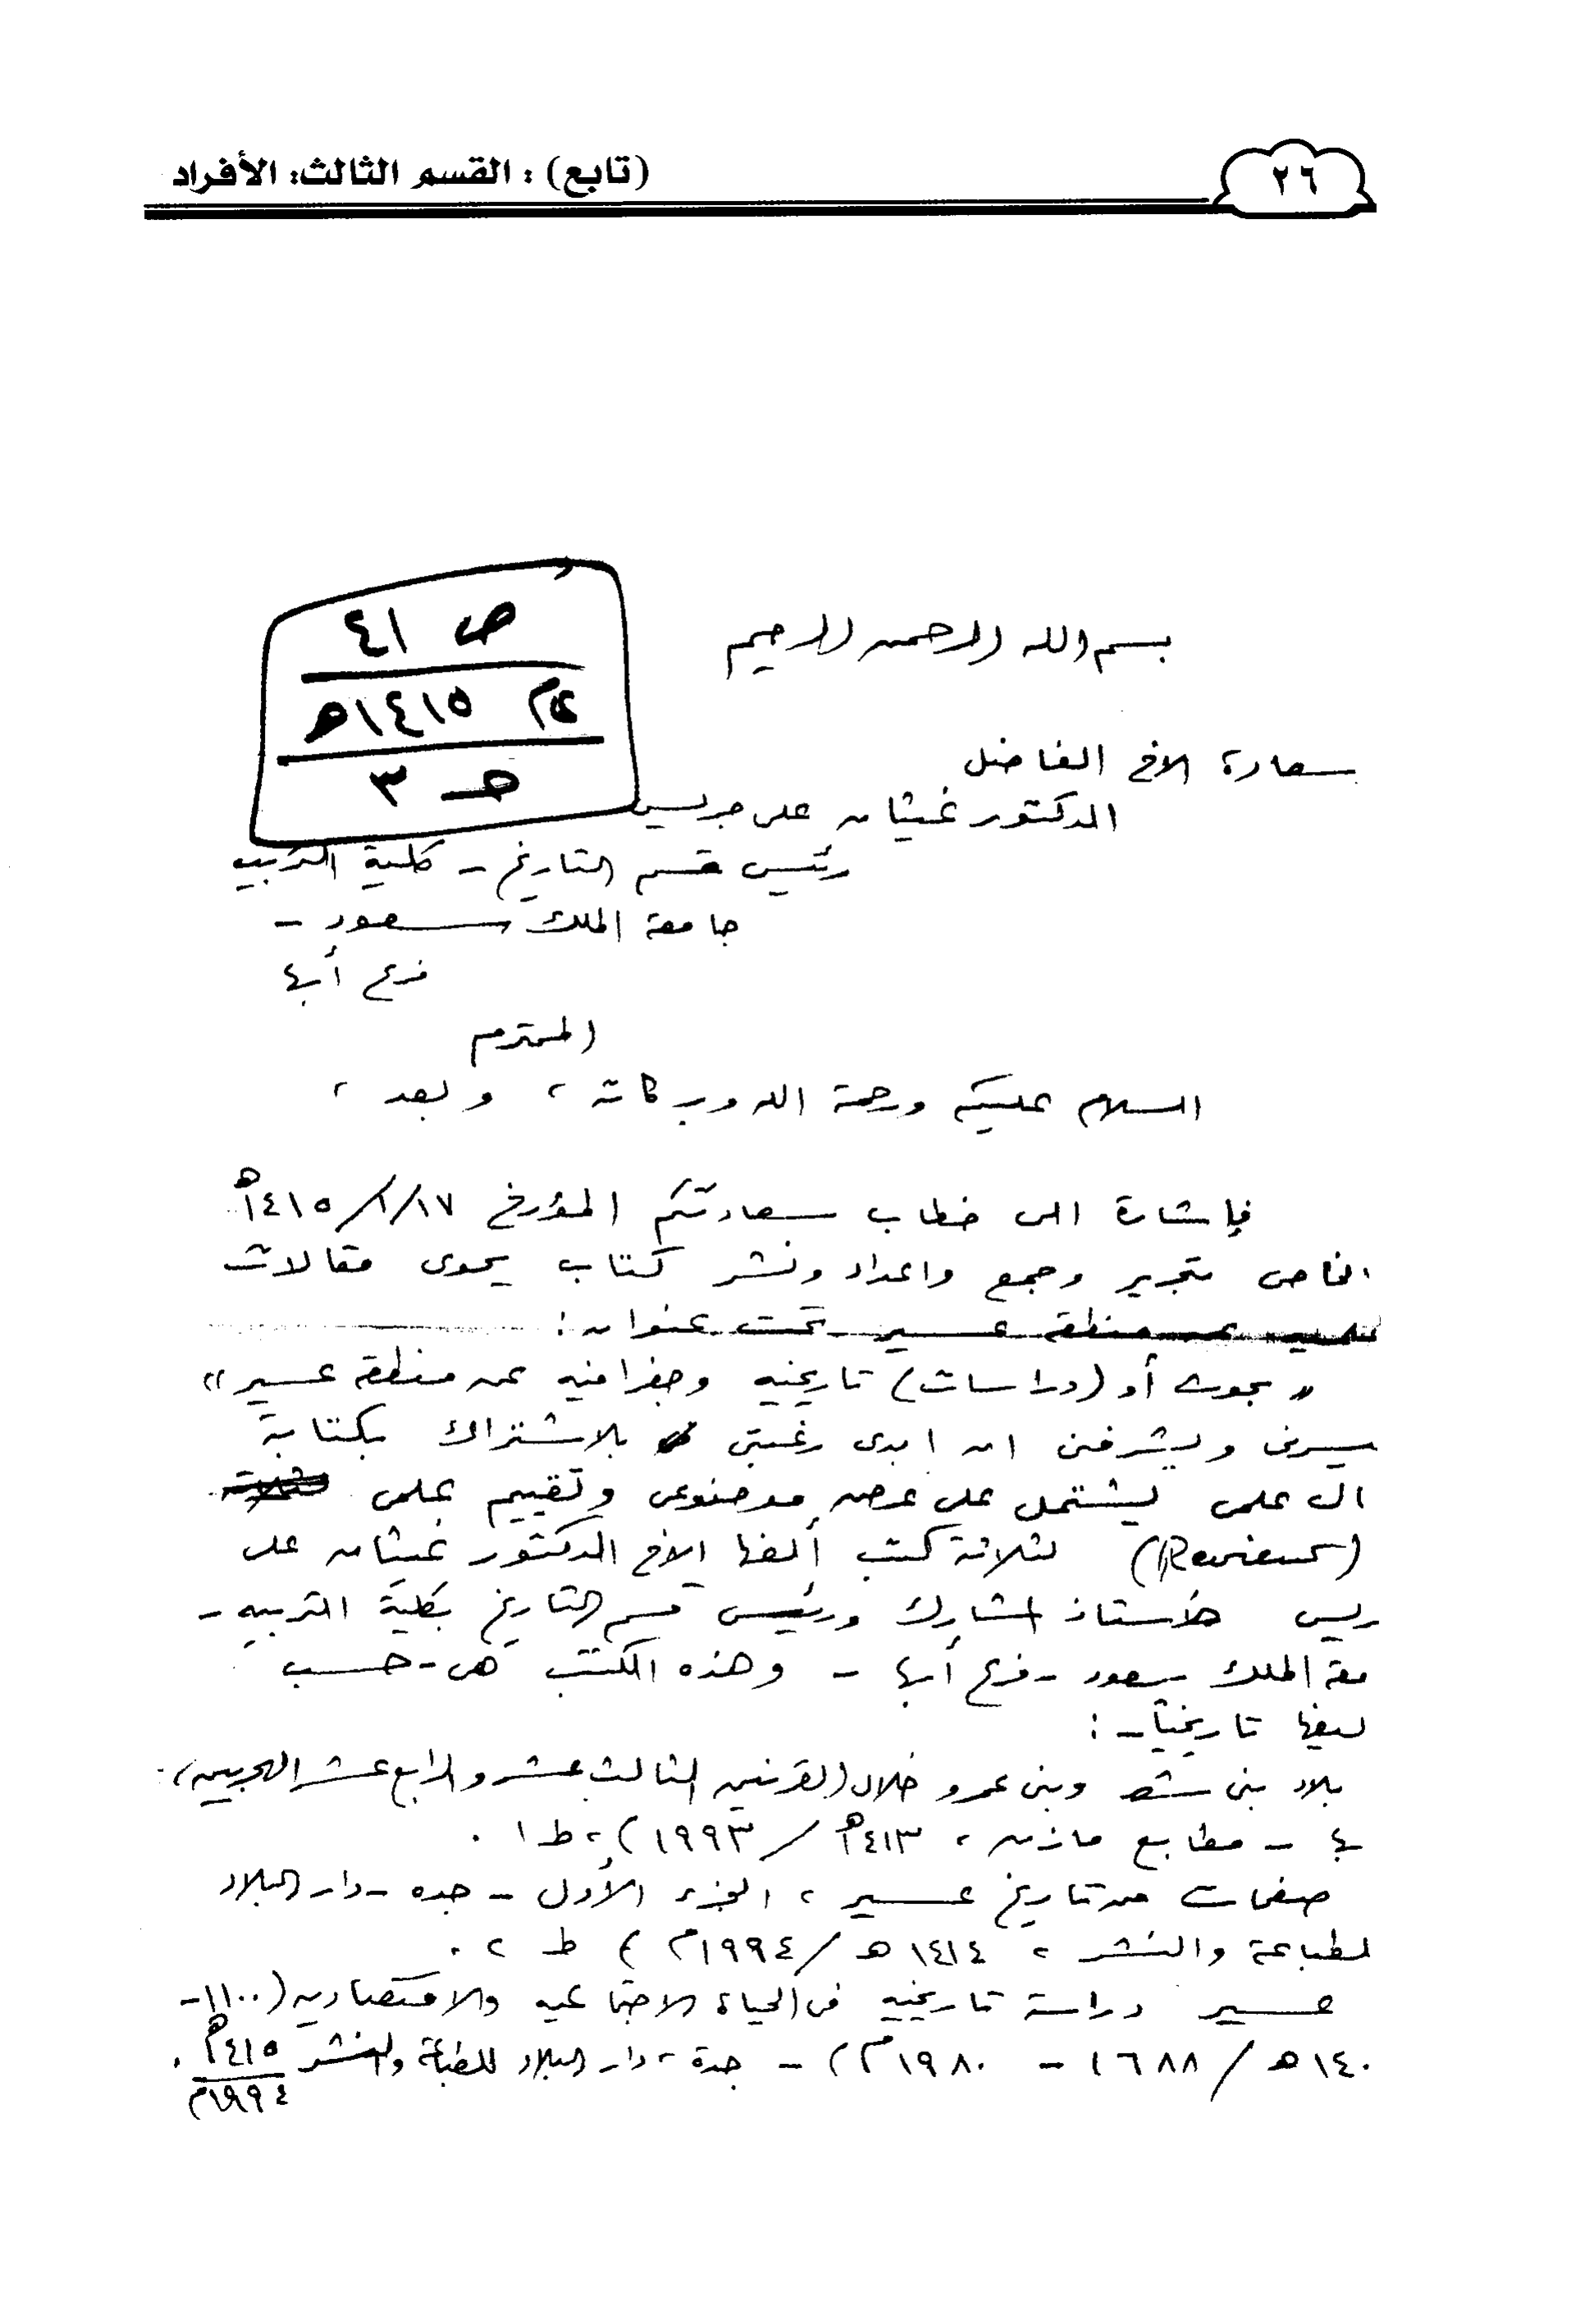 ٢٦
(تابع) : القسم الثالث: الأفراد
ص ٤١
م٢ ١٤١٥هـ
حـ ٣
بسم الله الرحمن الرحيم
سعادة الاخ الفاضل
الدكتور غيثان على جريس
رئيس قسم التاريخ - كلية التربيه
جامعة الملك سعود -
فرع أبها
المحترم
السلام عليكم ورحمة الله وبركاته ، وبعد ،
فإشارة الى خطاب سعادتكم المؤرخ ١٧/١/١٤١٥هـ
الخاص بتحرير وجمع واعداد ونشر كتاب يحوى مقالات
عن منطقة عسير تحت عنوان :
" بحوث أو (دراسات) تاريخيه وجغرافيه عن منطقة عسير "
يسرنى ويشرفنى ان ابدى رغبتى بالاشتراك بكتابة
ال علمى يشتمل على عرض موضوعى وتقييم علمى
(Review) لثلاثة كتب ألفها الاخ الدكتور غيثان على
ريس الأستاذ المشارك ورئيس قسم التاريخ بكلية التربيه -
معة الملك سعود - فرع أبها - وهذه الكتب هى - حسب
ليفها تاريخياً - :
بلاد بنى شهر وبنى عمرو خلال القرنين الثالث عشر والرابع عشر الهجريين ،
ـها - مطابع مازن ، ١٤١٣هـ / ١٩٩٣) ، ط ١ .
صفحات من تاريخ عسير ، الجزء الأول - جده - دار البلاد
لطباعة والنشر ، ١٤١٤ هـ / ١٩٩٤م) ط ٢ .
عسير دراسة تاريخيه فى الحياة الاجتماعيه والاقتصاديه (١١٠٠-
١٤٠٠هـ / ١٦٨٨ - ١٩٨٠م) - جدة ، دار البلاد للطباعة والنشر ١٤١٥هـ .
١٩٩٤م